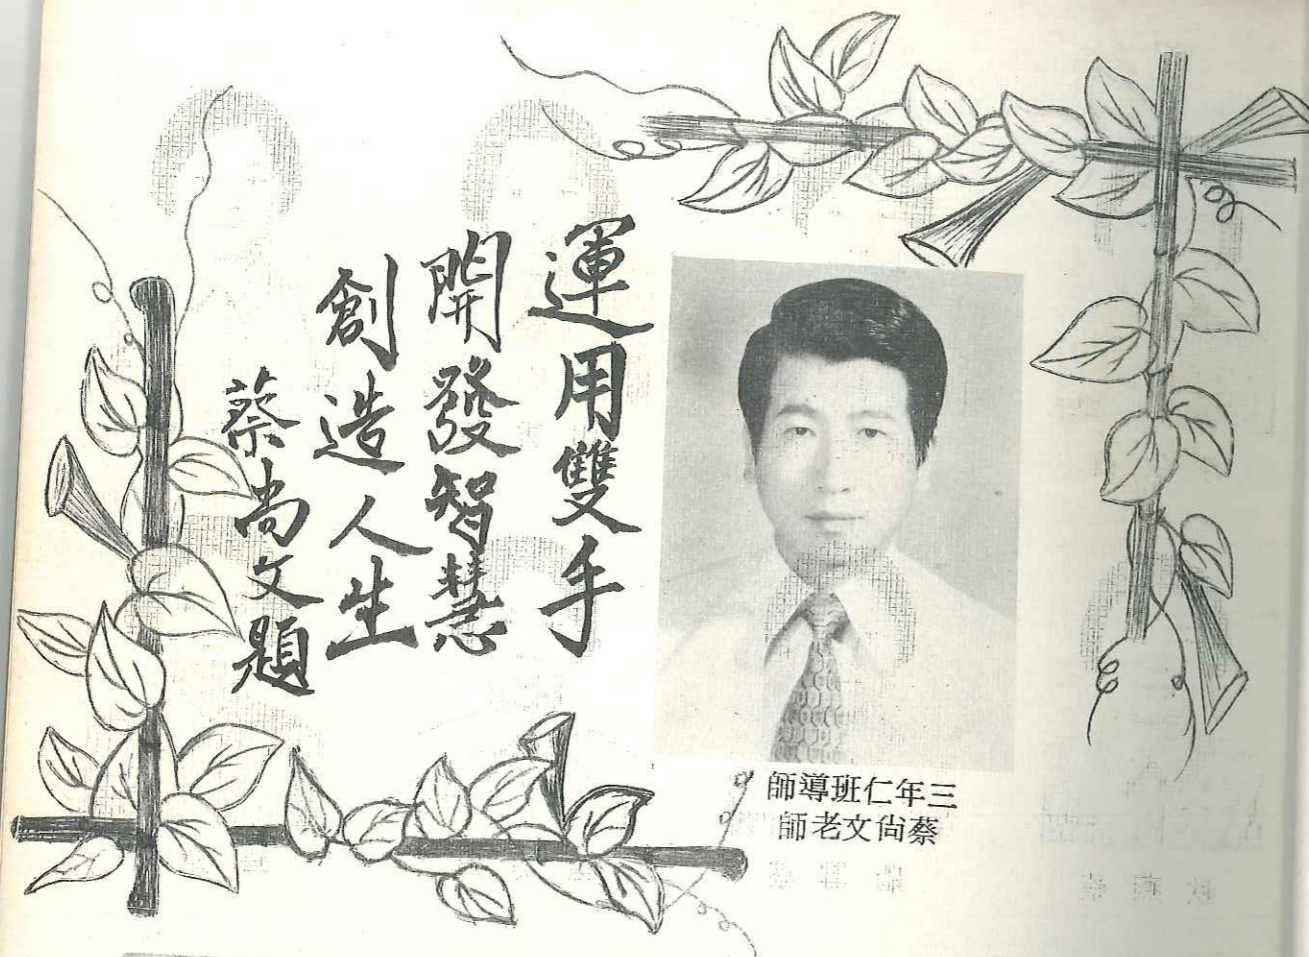 運用雙手
開發智慧
創造人生
蔡尚文題
師導班仁年三
師老文尚蔡